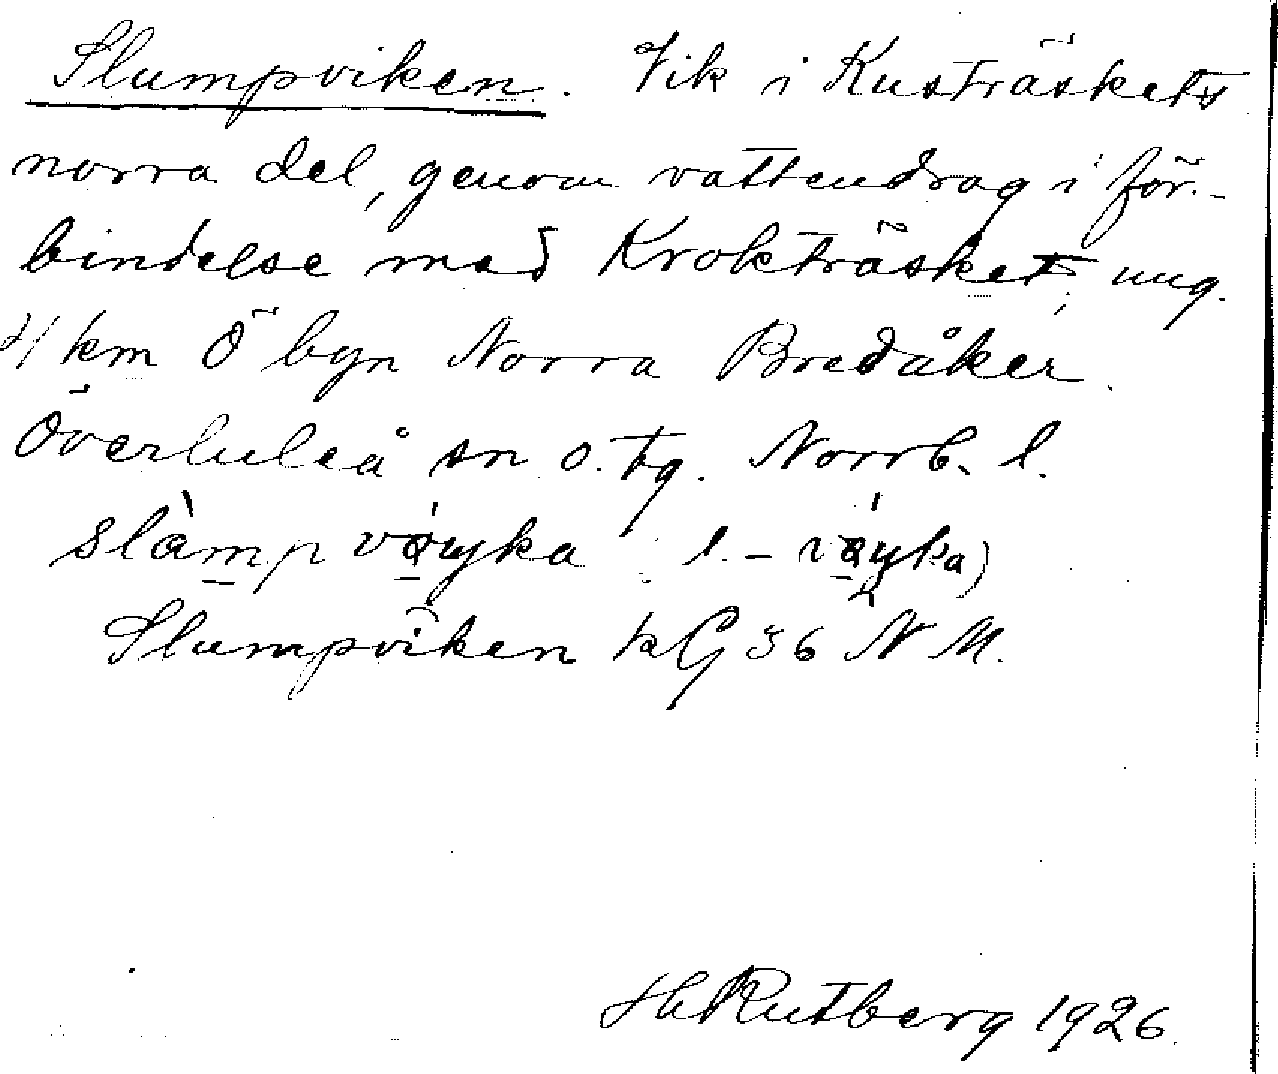 Slumpviken. Vik i Kusträskets
norra del, genom vattendrag i för-
bindelse med Krokträsket, ung.
4 km Ö byn Norra Bredåker.
Överluleå sn o. tg. Norrb. l.
slàmp
Slumpviken kG 36 N M.
H Rutberg 1926.